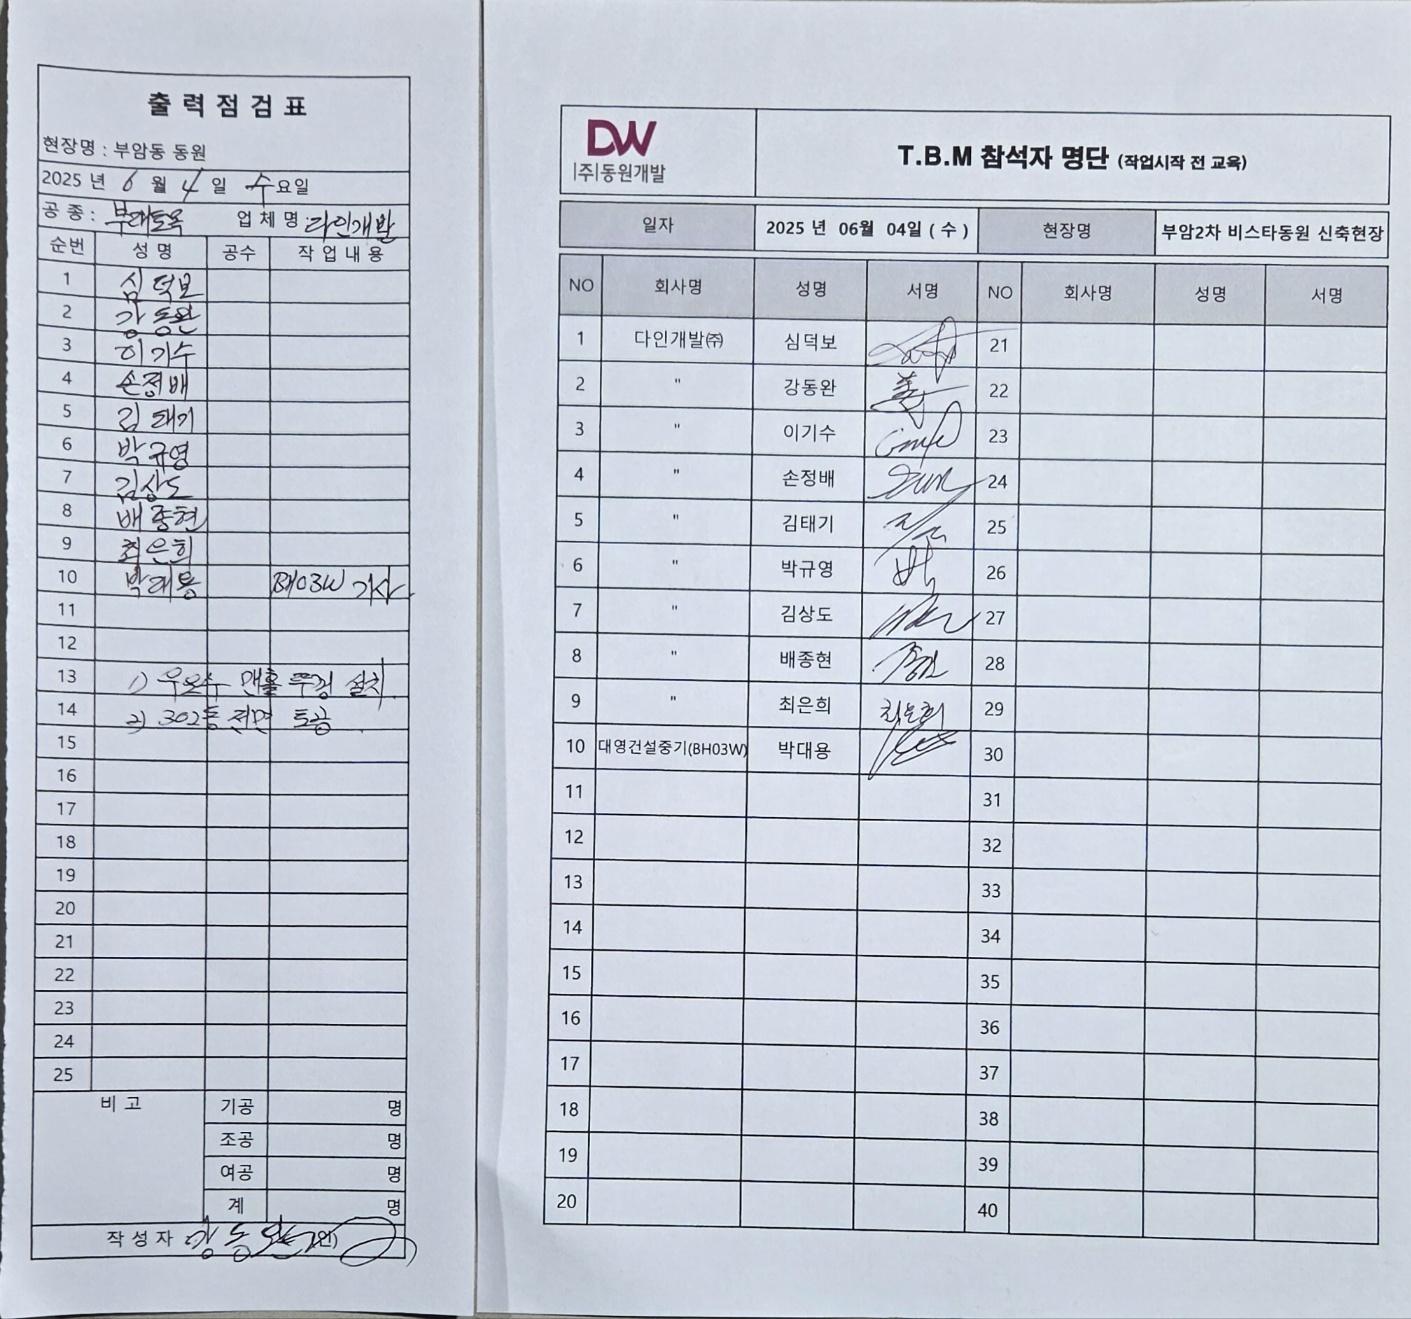 출력점검표
현장명 : 부암동 동원
2025 년 6 월 4 일 수요일
공 종 : 부대토목 업 체 명 : 다인개발
순번 성 명 공수 작 업 내 용
1 심덕보
2 강동완
3 이기수
4 손정배
5 김태기
6 박규영
7 김상도
8 배종현
9 최은희
10 박대용 BH03W 기사
11
12
13 1) 우오수 맨홀 뚜껑 설치
14 2) 302동 전면 토공
15
16
17
18
19
20
21
22
23
24
25
비 고 기공 명
조공 명
여공 명
계 명
작 성 자 강동완 (인)
DW
|주|동원개발
T.B.M 참석자 명단 (작업시작 전 교육)
일자 2025 년 06월 04일 ( 수 ) 현장명 부암2차 비스타동원 신축현장
NO 회사명 성명 서명 NO 회사명 성명 서명
1 다인개발㈜ 심덕보 21
2 " 강동완 22
3 " 이기수 23
4 " 손정배 24
5 " 김태기 25
6 " 박규영 26
7 " 김상도 27
8 " 배종현 28
9 " 최은희 최은희 29
10 대영건설중기(BH03W) 박대용 30
11 31
12 32
13 33
14 34
15 35
16 36
17 37
18 38
19 39
20 40